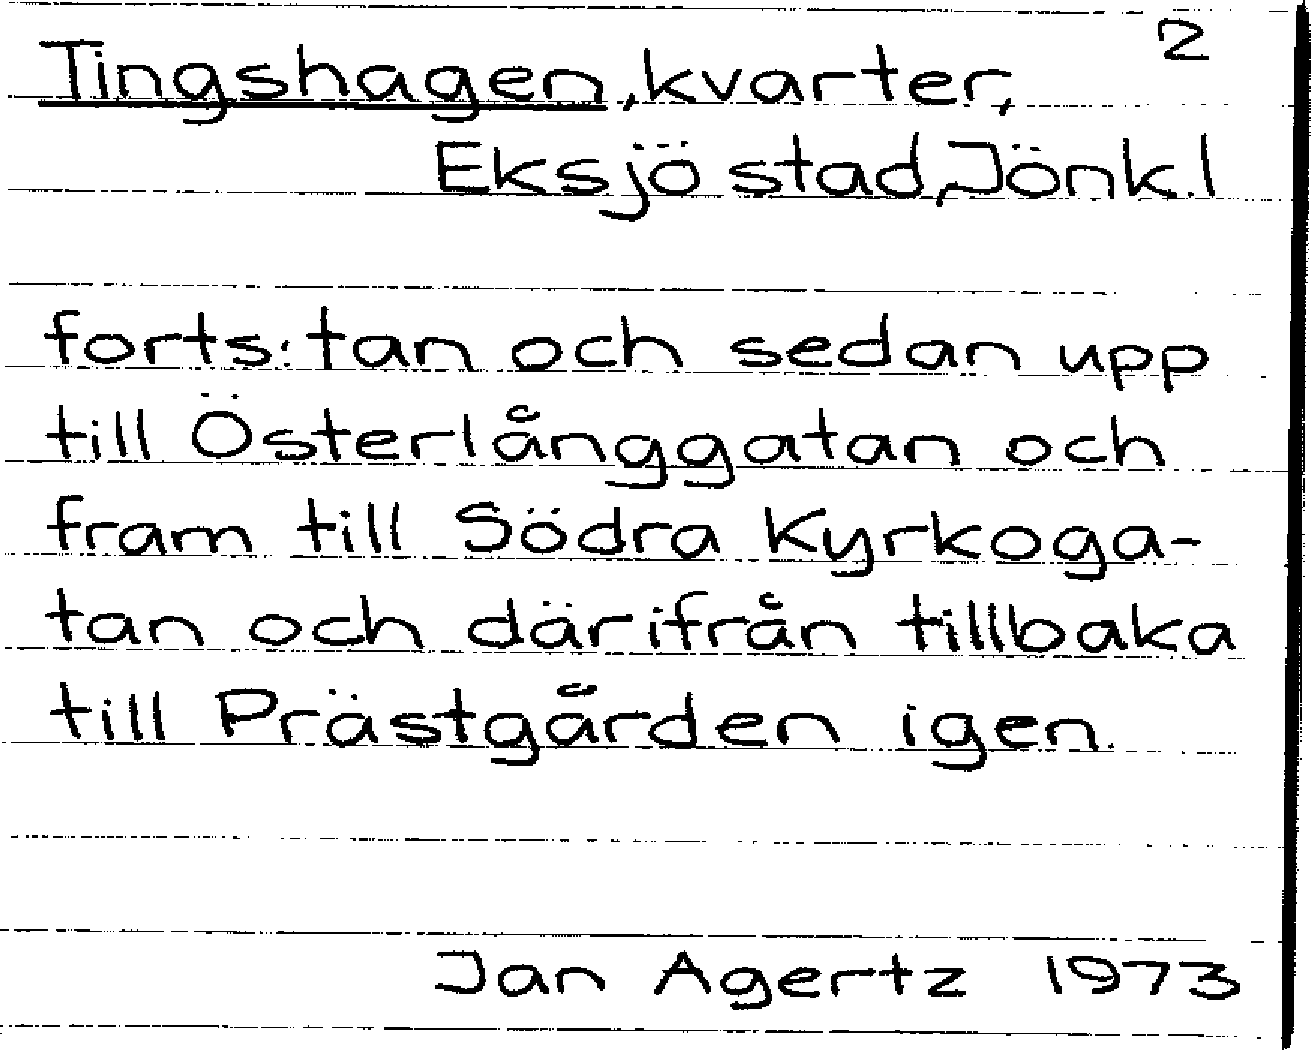 2
Tingshagen, kvarter,
Eksjö stad, Jönk.l
forts: tan och sedan upp
till Österlånggatan och
fram till Södra Kyrkoga-
tan och därifrån tillbaka
till Prästgården igen.
Jan Agertz 1973